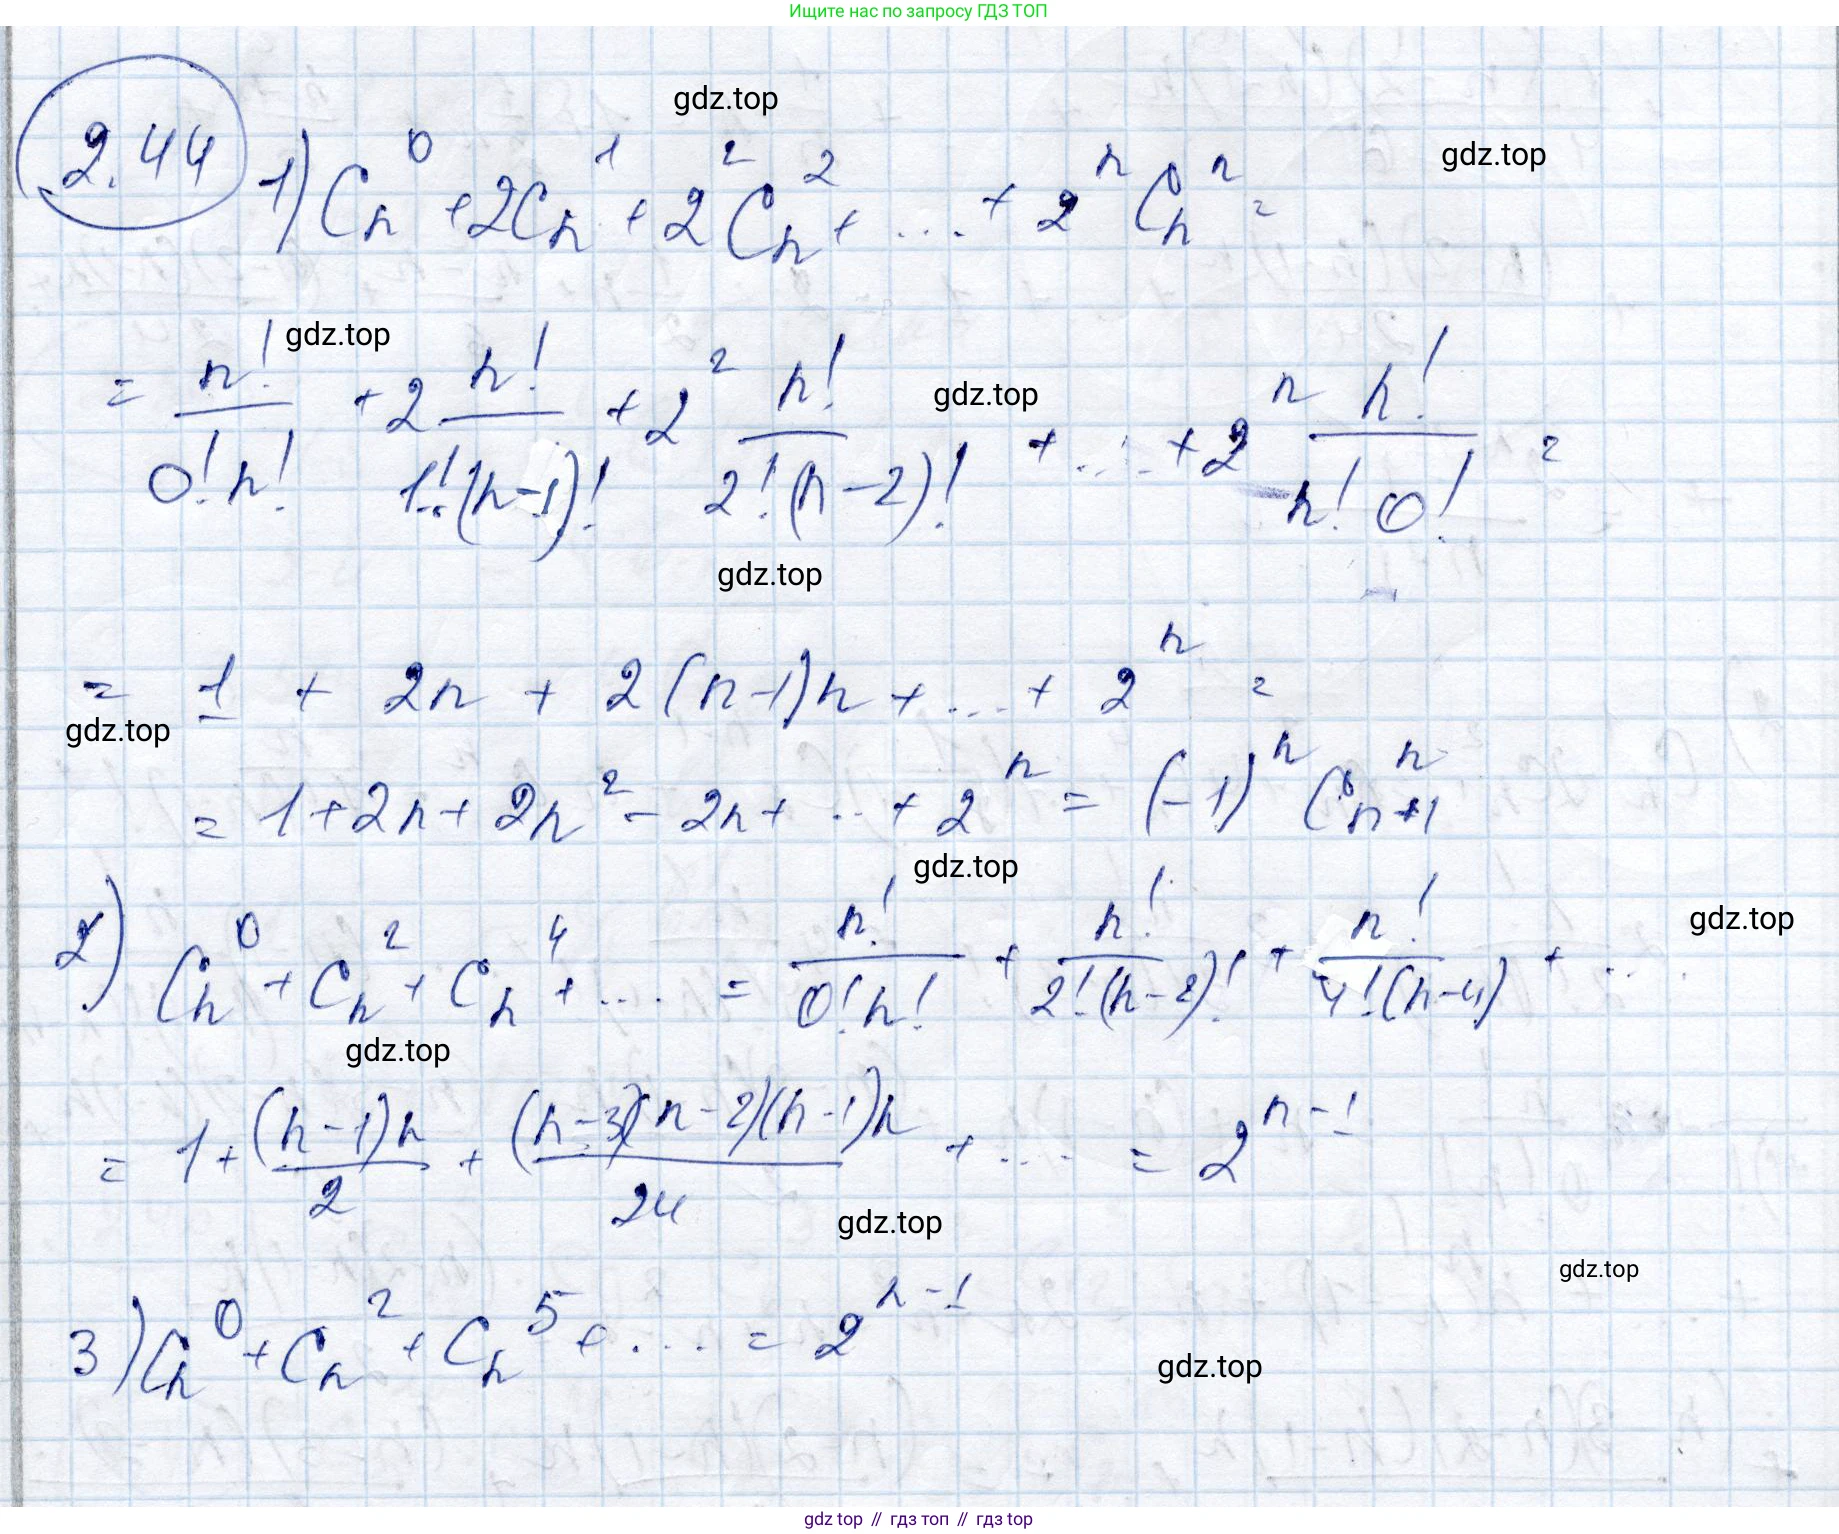 Ищите нас по запросу ГДЗ ТОП
gdz.top
gdz.top
2.44 1) C_n^0 + 2C_n^1 + 2^2 C_n^2 + ... + 2^n C_n^n =
gdz.top
gdz.top
= n!/(0! n!) + 2 n!/(1!(n-1)!) + 2^2 n!/(2!(n-2)!) + ... + 2^n n!/(n! 0!) =
gdz.top
= 1 + 2n + 2(n-1)n + ... + 2^n =
gdz.top
= 1 + 2n + 2n^2 - 2n + ... + 2^n = (-1)^n C_{n+1}^n
gdz.top
gdz.top
2) C_n^0 + C_n^2 + C_n^4 + ... = n!/(0! n!) + n!/(2!(n-2)!) + n!/(4!(n-4)) + ...
gdz.top
= 1 + (n-1)n/2 + (n-3)(n-2)(n-1)n/24 + ... = 2^{n-1}
gdz.top
gdz.top
3) C_n^0 + C_n^2 + C_n^5 + ... = 2^{n-1}
gdz.top
gdz top // гдз топ // гдз top